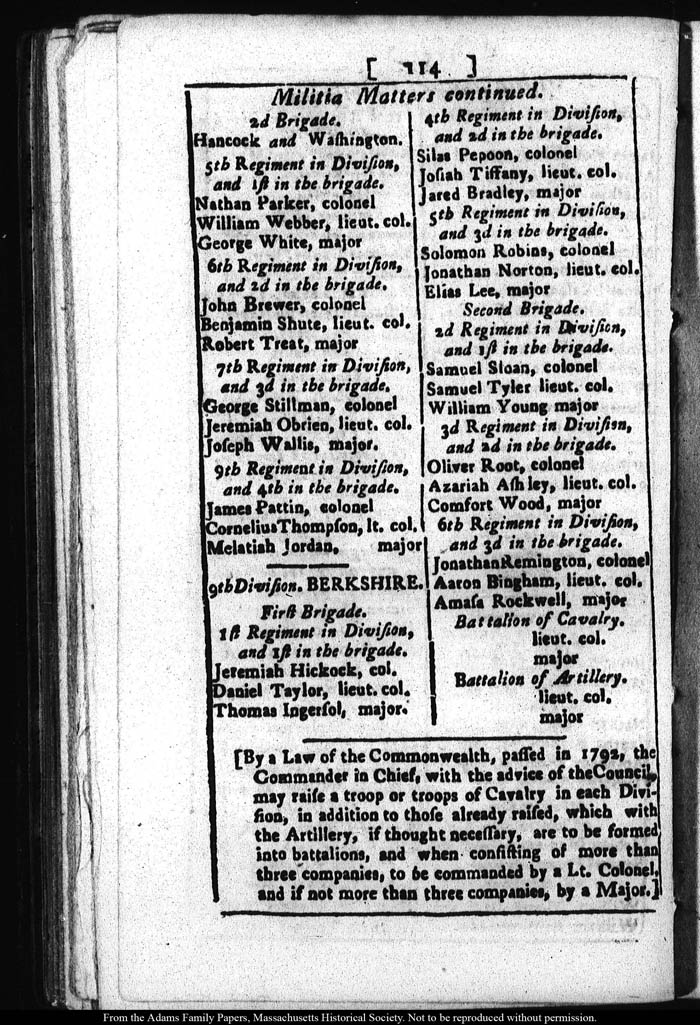 [ 114 ]
Militia Matters continued.
2d Brigade.
Hancock and Waſhington.
5th Regiment in Diviſion,
and 1ſt in the brigade.
Nathan Parker, colonel
William Webber, lieut. col.
George White, major
6th Regiment in Diviſion,
and 2d in the brigade.
John Brewer, colonel
Benjamin Shute, lieut. col.
Robert Treat, major
7th Regiment in Diviſion,
and 3d in the brigade.
George Stillman, colonel
Jeremiah Obrien, lieut. col.
Joſeph Wallis, major.
9th Regiment in Diviſion,
and 4th in the brigade.
James Pattin, colonel
Cornelius Thompſon, lt. col.
Melatiah Jordan, major
9th Diviſion. BERKSHIRE.
Firſt Brigade.
1ſt Regiment in Diviſion,
and 1ſt in the brigade.
Jeremiah Hickock, col.
Daniel Taylor, lieut. col.
Thomas Ingerſol, major.
4th Regiment in Diviſion,
and 2d in the brigade.
Silas Pepoon, colonel
Joſiah Tiffany, lieut. col.
Jared Bradley, major
5th Regiment in Diviſion,
and 3d in the brigade.
Solomon Robins, colonel
Jonathan Norton, lieut. col.
Elias Lee, major
Second Brigade.
2d Regiment in Diviſion,
and 1ſt in the brigade.
Samuel Sloan, colonel
Samuel Tyler lieut. col.
William Young major
3d Regiment in Diviſion,
and 2d in the brigade.
Oliver Root, colonel
Azariah Aſhley, lieut. col.
Comfort Wood, major
6th Regiment in Diviſion,
and 3d in the brigade.
Jonathan Remington, colonel
Aaron Bingham, lieut. col.
Amaſa Rockwell, major
Battalion of Cavalry.
lieut. col.
major
Battalion of Artillery.
lieut. col.
major
[By a Law of the Commonwealth, paſſed in 1792, the
Commander in Chief, with the advice of the Council,
may raiſe a troop or troops of Cavalry in each Divi-
ſion, in addition to thoſe already raiſed, which with
the Artillery, if thought neceſſary, are to be formed
into battalions, and when conſiſting of more than
three companies, to be commanded by a Lt. Colonel,
and if not more than three companies, by a Major.]
From the Adams Family Papers, Massachusetts Historical Society. Not to be reproduced without permission.